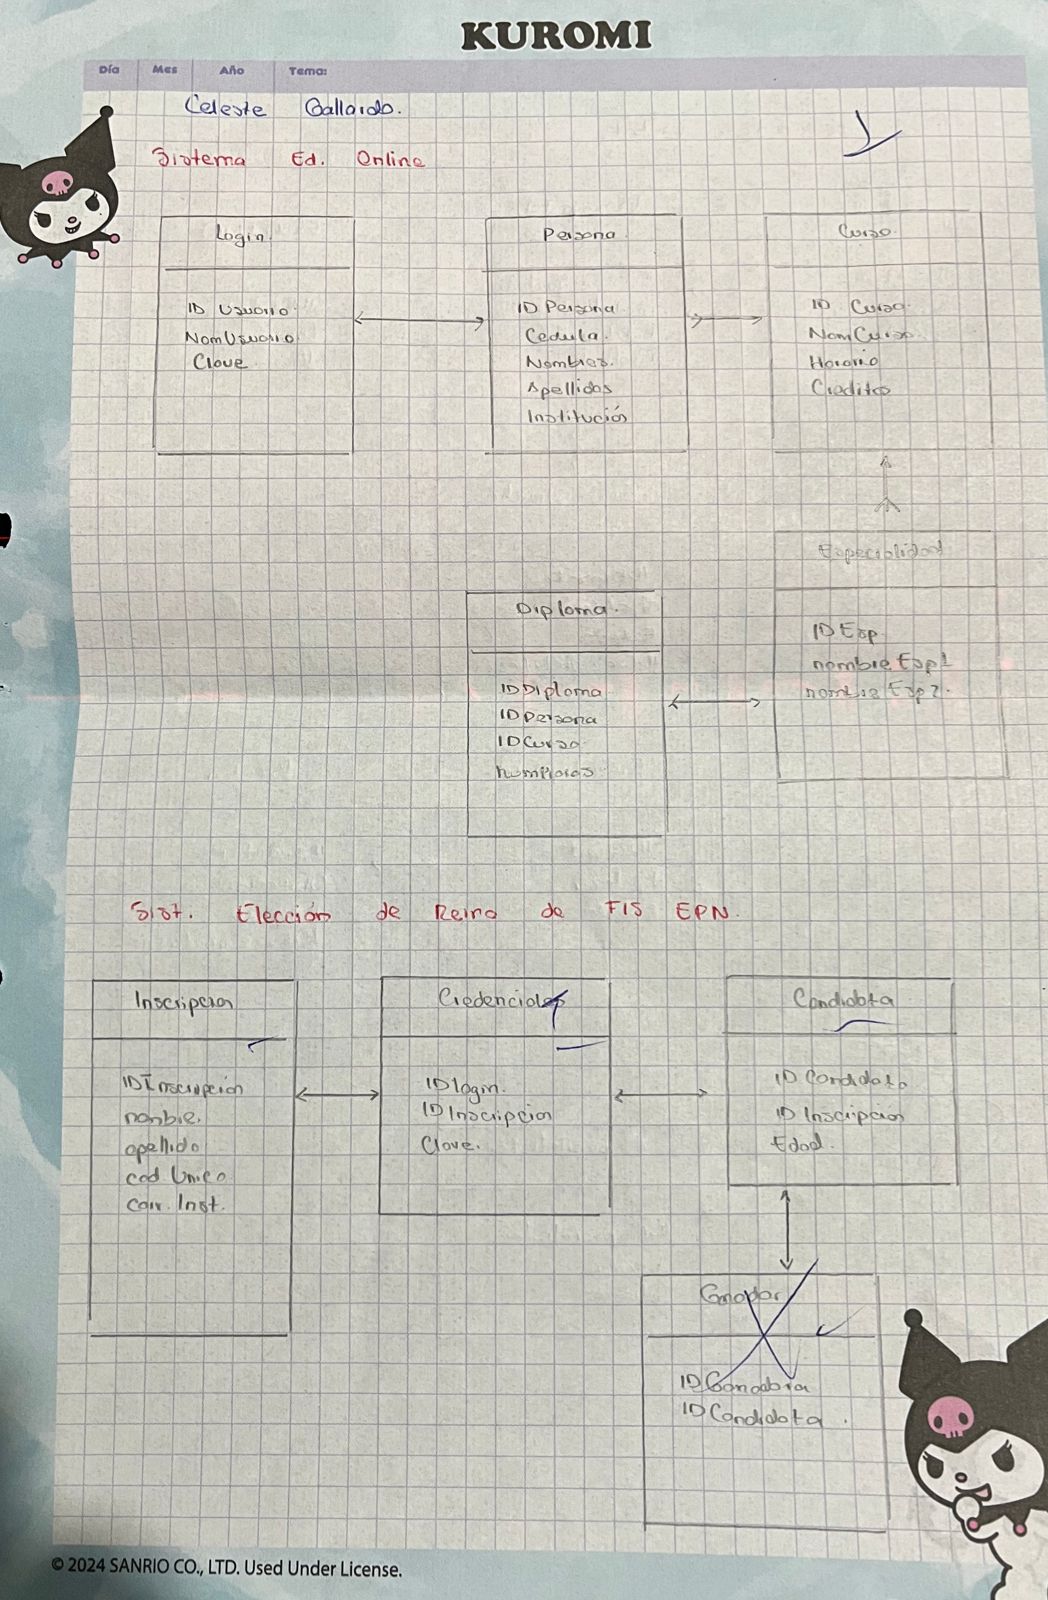 KUROMI
Día Mes Año Tema:
Celeste Gallardo.
Sistema Ed. Online
Login.
ID Usuario
NomUsuario
Clave
Persona
ID Persona
Cedula.
Nombres.
Apellidos
Institución
Curso.
ID Curso.
NomCurso.
Horario
Creditos
Especialidad
ID Esp.
nombre Esp1
nombre Esp2.
Diploma.
IDDiploma
IDPersona
IDCurso
numHoras
Sist. Elección de Reina de FIS EPN.
Inscripcion
IDInscripción
nombre.
apellido
cod Unico
corr. Inst.
Credenciales
IDlogin.
IDInscripcion
Clave.
Candidata
ID Candidata
ID Inscripcion
Edad.
IDCandidata.
© 2024 SANRIO CO., LTD. Used Under License.